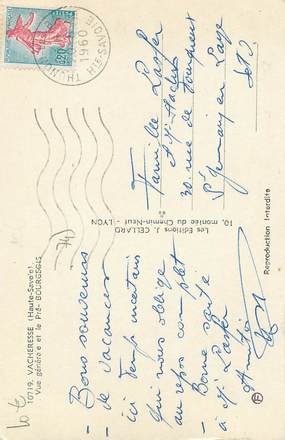 10719. VACHERESSE (Haute-Savoie)
Vue générale et le Pré-BOURGEOIS
Bons souvenirs
de vacances
ici Temps incertain
qui nous oblige
au repos complet
Bonne santé
à Mr
Les Editions J. CELLARD
10, montée du Chemin-Neuf - LYON
Reproduction Interdite
0,20
1960
HTE-SAVOIE
Famille
30. rue de
St Germain en Laye
S et O
10 €